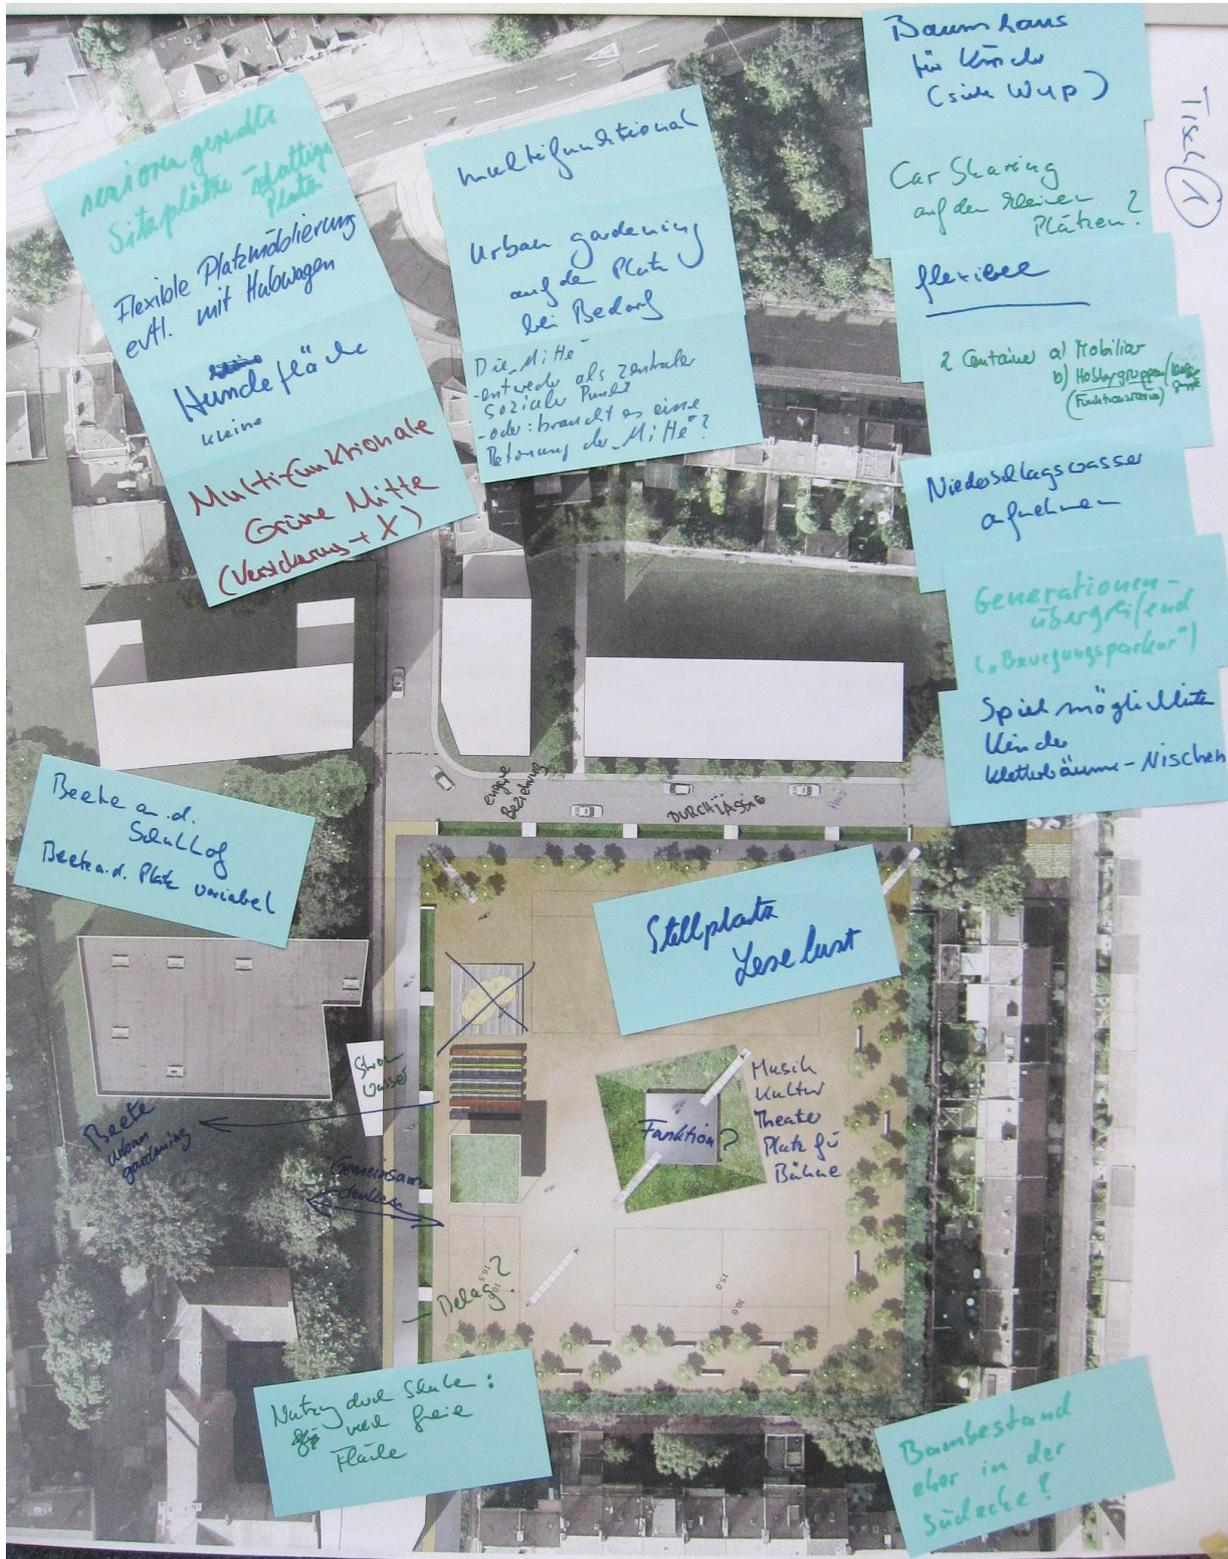 senioren gerechte
Sitzplätze - schattige
Plätze
Flexible Platzmöblierung
evtl. mit Hubwagen
Hundefläche
kleine
Multifunktionale
Grüne Mitte
(Versickerung + X)
multifunktional
Urban gardening
auf dem Platz
bei Bedarf
Die „Mitte"
- entweder als zentraler
sozialer Punkt
- oder: braucht es eine
Betonung der „Mitte"?
Baumhaus
für Kinder
(siehe Wup)
Car Sharing
auf den kleinen
Plätzen?
flexibel
2 Container a) Mobiliar
b) Hobbygruppen/
(Funktionsräume)
Niederschlagswasser
aufnehmen
Generationen-
übergreifend
(„Bewegungsparkur")
Spielmöglichkeiten
Kinder
Kletterbäume - Nischen
Tisch 1
enge
Beziehung
DURCHLÄSSIG
Beete a.d.
Schulhof
Beete a.d. Platz variabel
Stellplatz
Leselust
Strom
Wasser
Beete
urban
gardening
Gemeinsam
denken
Funktion?
Musik
Kultur
Theater
Platz für
Bühne
15.0
30.0
16.5
10.0
- Belag?
Nutzung durch Schule:
viel freie
Fläche
Baumbestand
eher in der
Südecke?